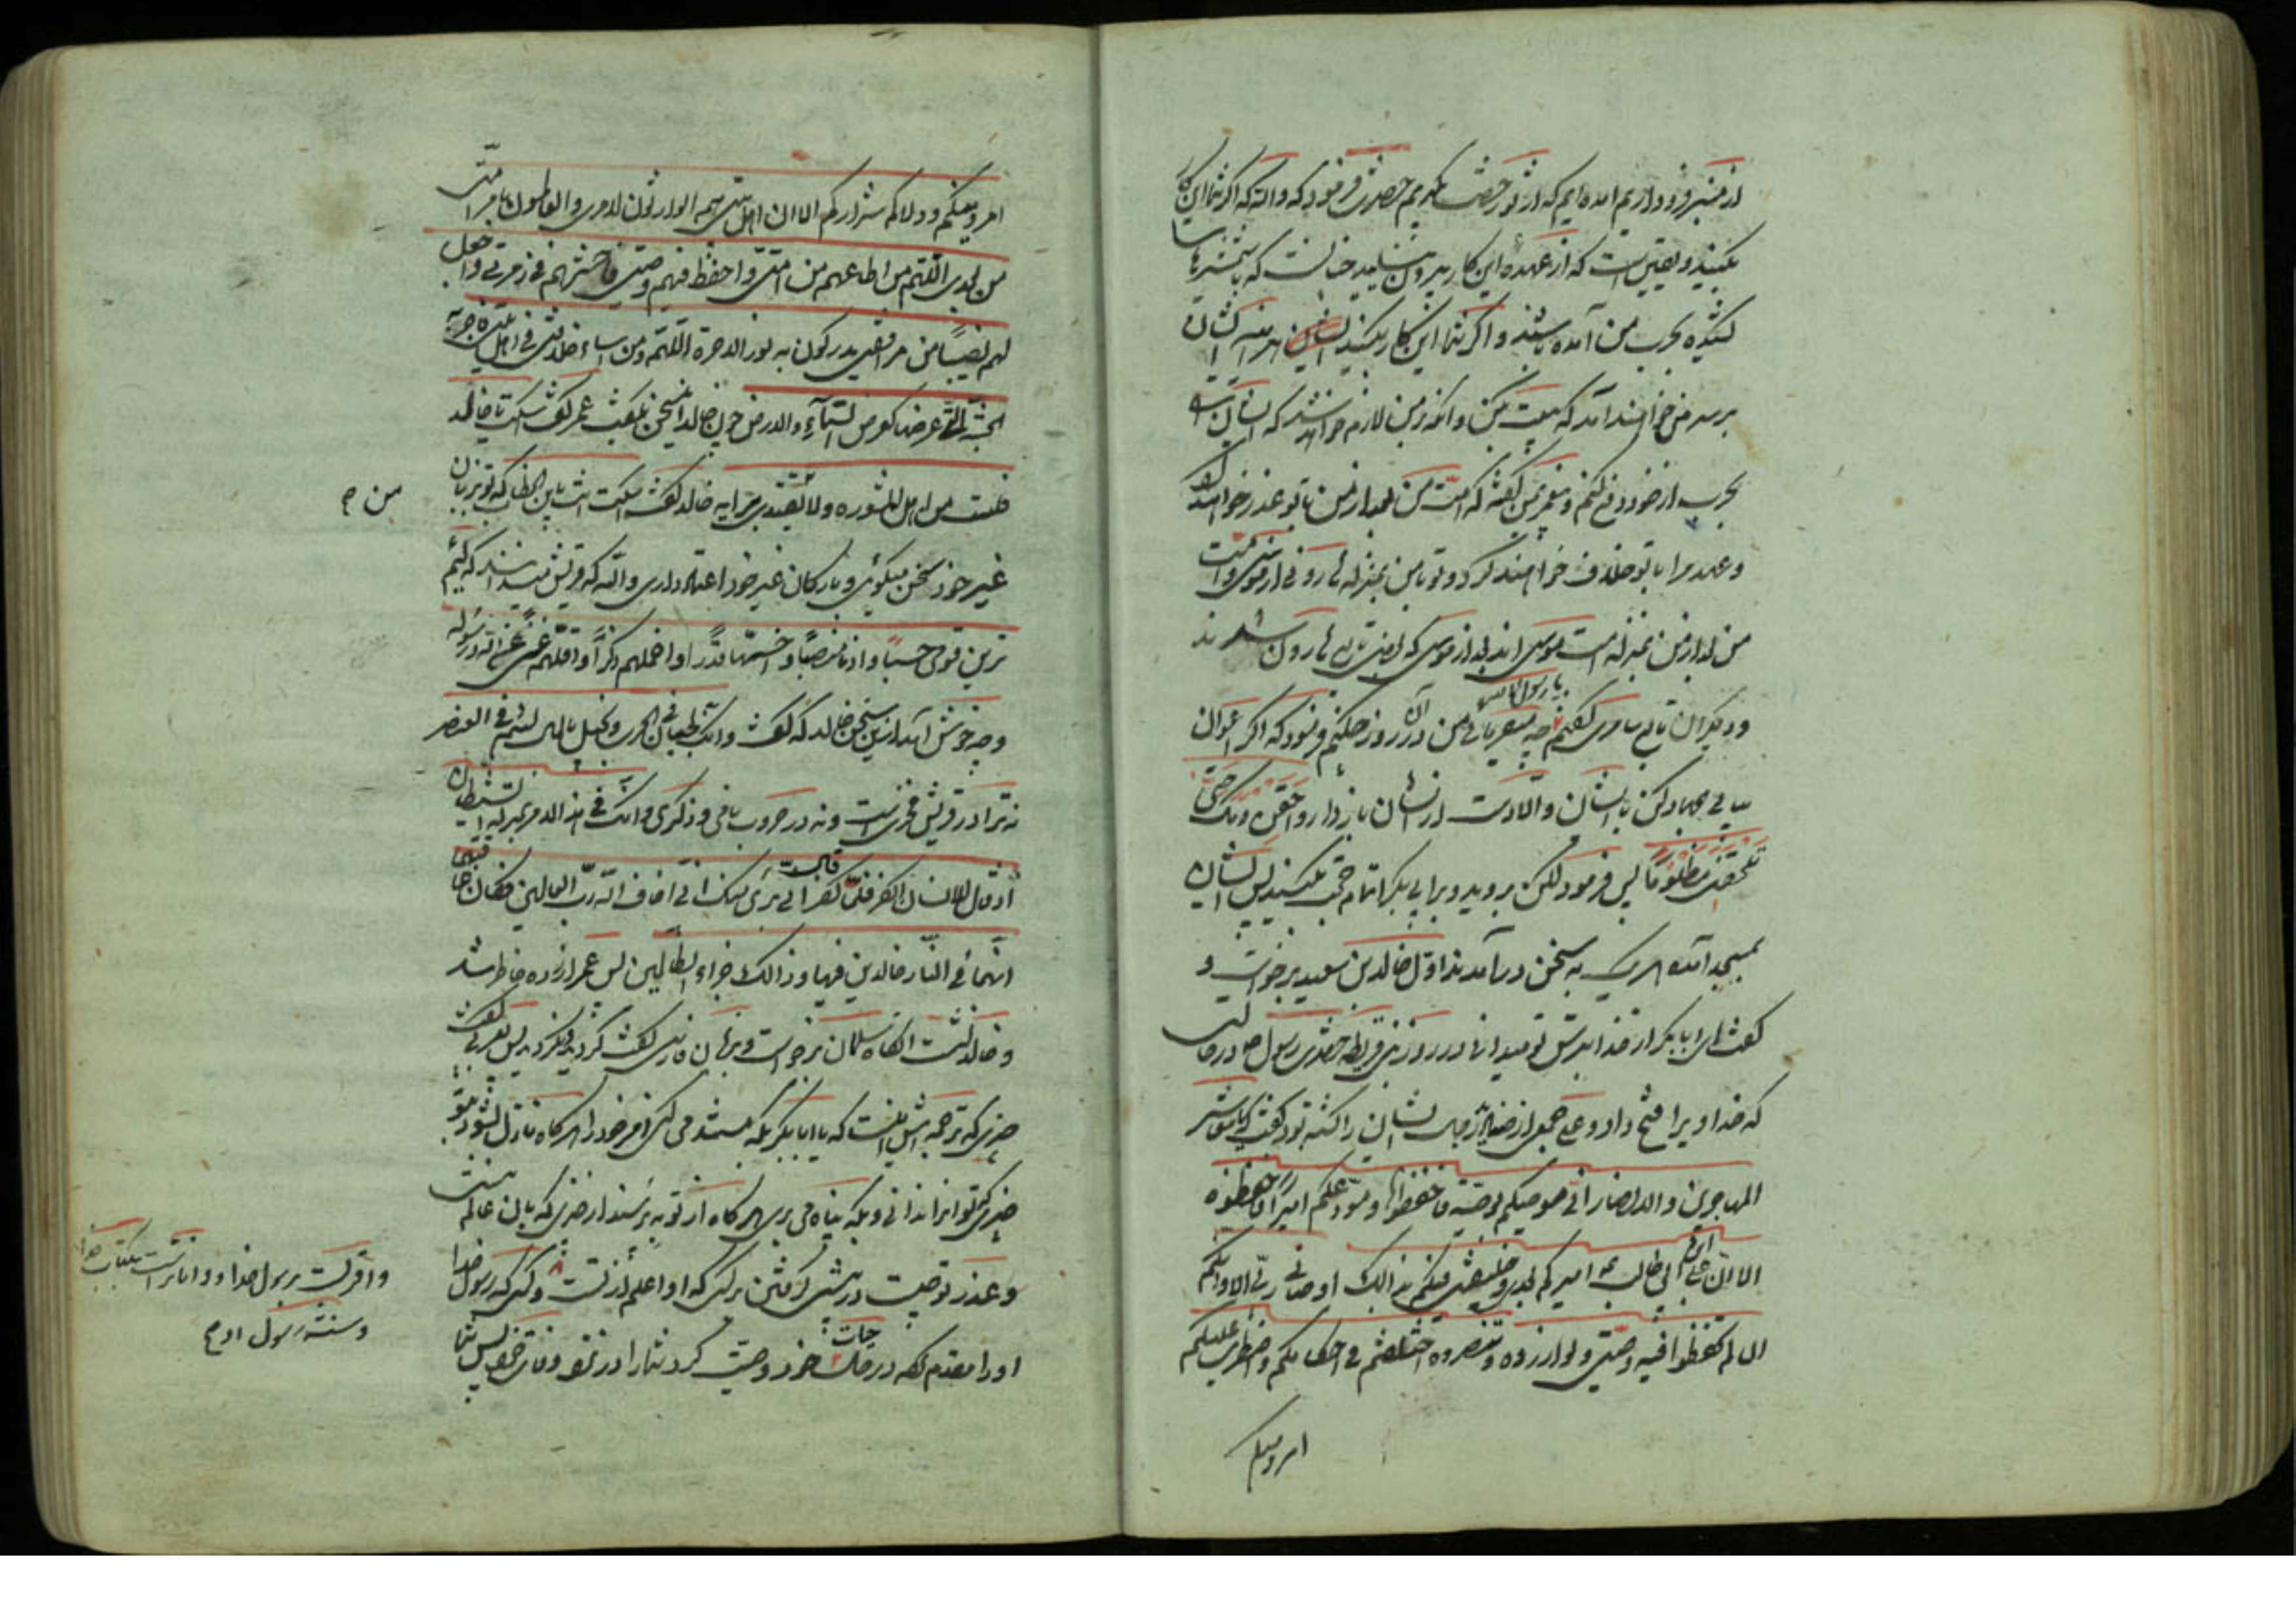 از منبر فرود آریم آمده ایم که از تو رخصت طلبیم حضرت فرمود که والله که اگر شما این کار
بکنید و یقین است که از عهده این کار بیرون نیایید چنانست که با شمشیرها
کشیده بحرب من آمده باشند و اگر شما این کار بکنید ایشان
بر سر من خواهند آمد که بیعت کن و انگه بر من لازم خواهد شد که ایشان را
بحرب از خود دفع کنم و پیغمبر بمن گفته که امت من بعد از من با تو عذر خواهند کرد
و عهد مرا با تو خلاف خواهند کرد و تو با من بمنزله هارونی از موسی و امت
من بعد از من بمنزله امت موسی اند بعد از موسی که بعضی تابع هارون شدند
و دیگران تابع سامری گفتم یا رسول الله چه میفرمایی من در آن روز چکنم فرمود که اگر اعوان
بیابی جهاد کن با ایشان والا دست از ایشان باز دار و احقن دمک حتی
تلحقنی مظلوما پس فرمود لکن بروید و بر ابی بکر اتمام حجت بکنید پس ایشان
بمسجد آمده هر یک به سخن در آمدند اول خالد بن سعید برخواست و
گفت ای ابا بکر از خدا بترس تو میدانی در روز بنی قریظه حضرت رسول ص در حالتی
که خدا ویرا فتح داد و علی جمعی از صنادید رجال ایشان را کشته بود گفت یا معاشر
المهاجرین والانصار انی موصیکم بوصیة فاحفظوها و مودعکم امرا فاحفظوه
الا ان علی ابن ابی طالب امیرکم بعدی و خلیفتی فیکم بذالک اوصانی ربی الا وانکم
ان لم تحفظوا فیه وصیتی و توازروه و تنصروه اختلفتم فی احکامکم واضطرب علیکم
امر دینکم
امر دینکم و ولاکم شرارکم الا ان اهل بیتی هم الوارثون لامری والعاملون بامر امتی
من بعدی اللهم من اطاعهم من امتی واحفظ فیهم وصیتی فاحشرهم فی زمرتی واجعل
لهم نصیبا من مرافقتی یدرکون به نور الاخرة اللهم ومن اساء خلافتی فی اهل بیتی فاحرمه
الجنة التی عرضها کعرض السماء والارض چون خالد این سخن بگفت عمر گفت اسکت یا خالد
فلست من اهل المشوره ولا یقتدی برایه خالد گفت اسکت انت یابن الخطاب که تو بزبان
من ص
غیر خود سخن میگوئی و بارکان غیر خود اعتماد داری والله که قریش میدانند که لئیم
ترین قوی حسبا و ادنا منصبا و اخسها قدرا و اخملهم ذکرا و اقلهم غنی عن الله ورسوله
و چه خوش آمد ازین سخن خالد که گفت وانک لجبان فی الحرب و بخیل بالمال لئیم فی العنصر
نه ترا در قریش فخری است و نه در حروب یافی و ذکری وانک فی هذا الامر بمنزلة الشیطان
اذ قال للانسان اکفر فلما کفر قال انی بریء منک انی اخاف الله رب العالمین فکان عاقبتهما
انهما فی النار خالدین فیها وذالک جزاء الظالمین پس عمر آزرده خاطر شد
و خالد نشست انگاه سلمان برخواست و بزبان فارسی گفت کردید و نکردید پس بعربی گفت
چیزی که ترجمه اش اینست که یا ابا بکر بکه مستند می کنی امر خود را هر گاه نازل بشود بتو
چیزی که تو انرا ندانی و بکه پناه می بری هر گاه از تو بپرسند از چیزی که بان عالم نیستی
و عذر تو چیست در پیشی گرفتن بر کسی که او اعلم از تست و کسی که رسول خدا
واقرب است برسول خدا و داناتر است بکتاب خدا
و سنت رسول او ص
او را مقدم گفته در حیات خود و وصیت کرد شما را در نزد وفات خود پس شما